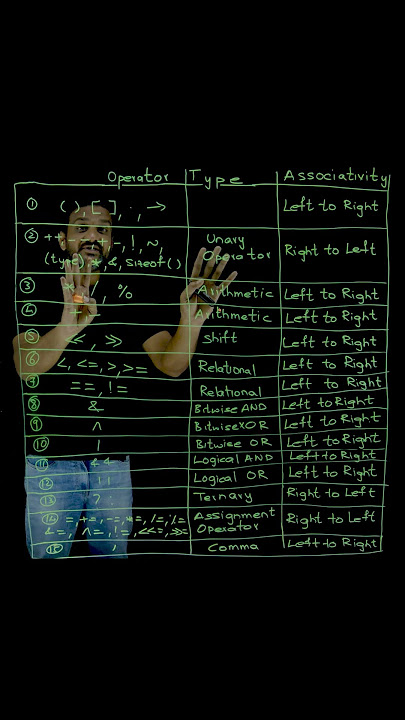 Operator Type Associativity
① ( ), [ ], ., → Left to Right
② ++ -- + -, !, ~, Unary Right to Left
(type), *, &, sizeof() Operator
③ * / , % Arithmetic Left to Right
④ + − Arithmetic Left to Right
⑤ <<, >> Shift Left to Right
⑥ <, <=, >, >= Relational Left to Right
⑦ ==, != Relational Left to Right
⑧ & Bitwise AND Left to Right
⑨ ^ Bitwise XOR Left to Right
⑩ | Bitwise OR Left to Right
⑪ && Logical AND Left to Right
⑫ || Logical OR Left to Right
⑬ ?: Ternary Right to Left
⑭ =, +=, -=, *=, /=, %= Assignment Right to Left
&=, ^=, !=, <<=, >>= Operator
⑮ , Comma Left to Right